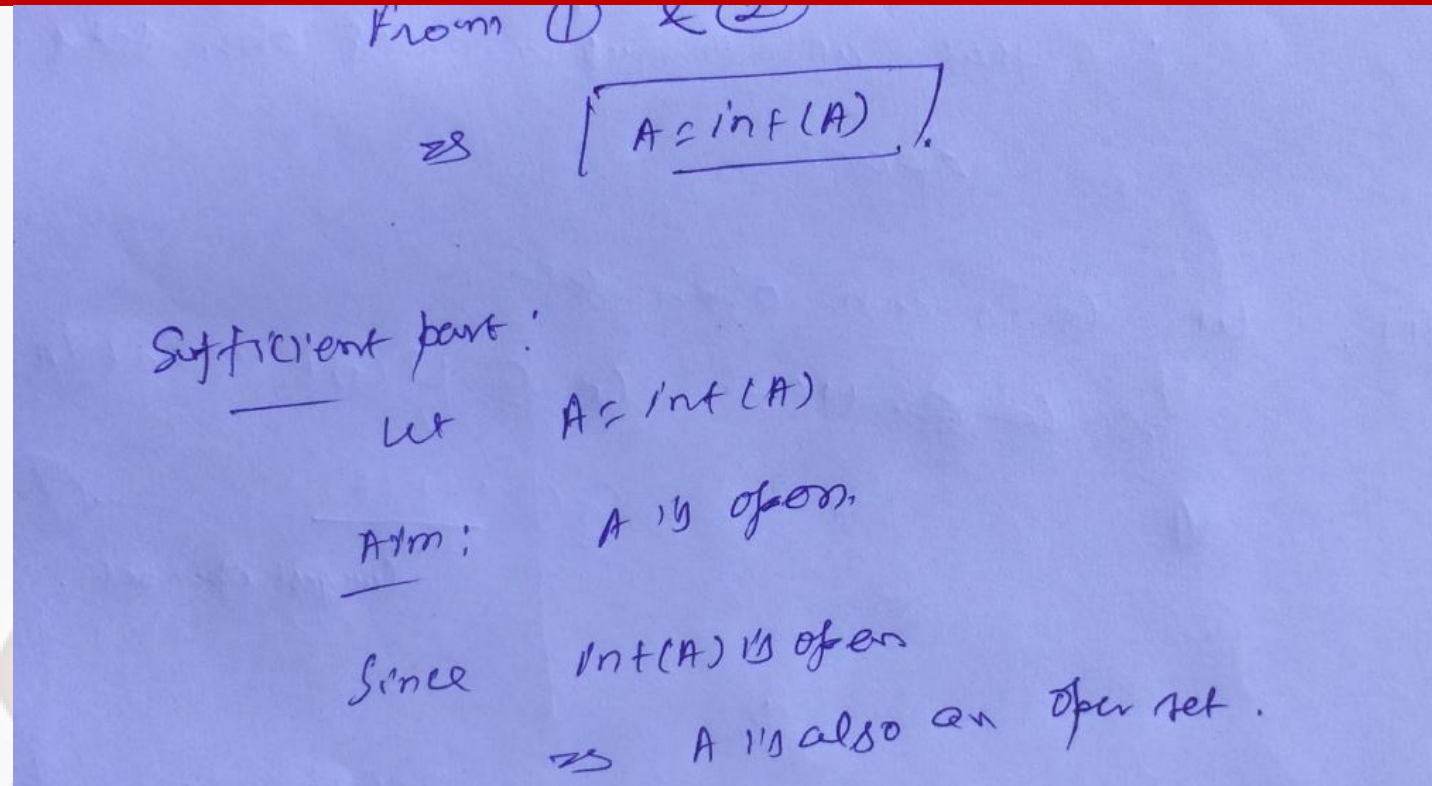 From ① & ②
⇒ A = int(A).
Sufficient part:
Let A = int(A)
Aim: A is open.
Since int(A) is open
⇒ A is also an open set.